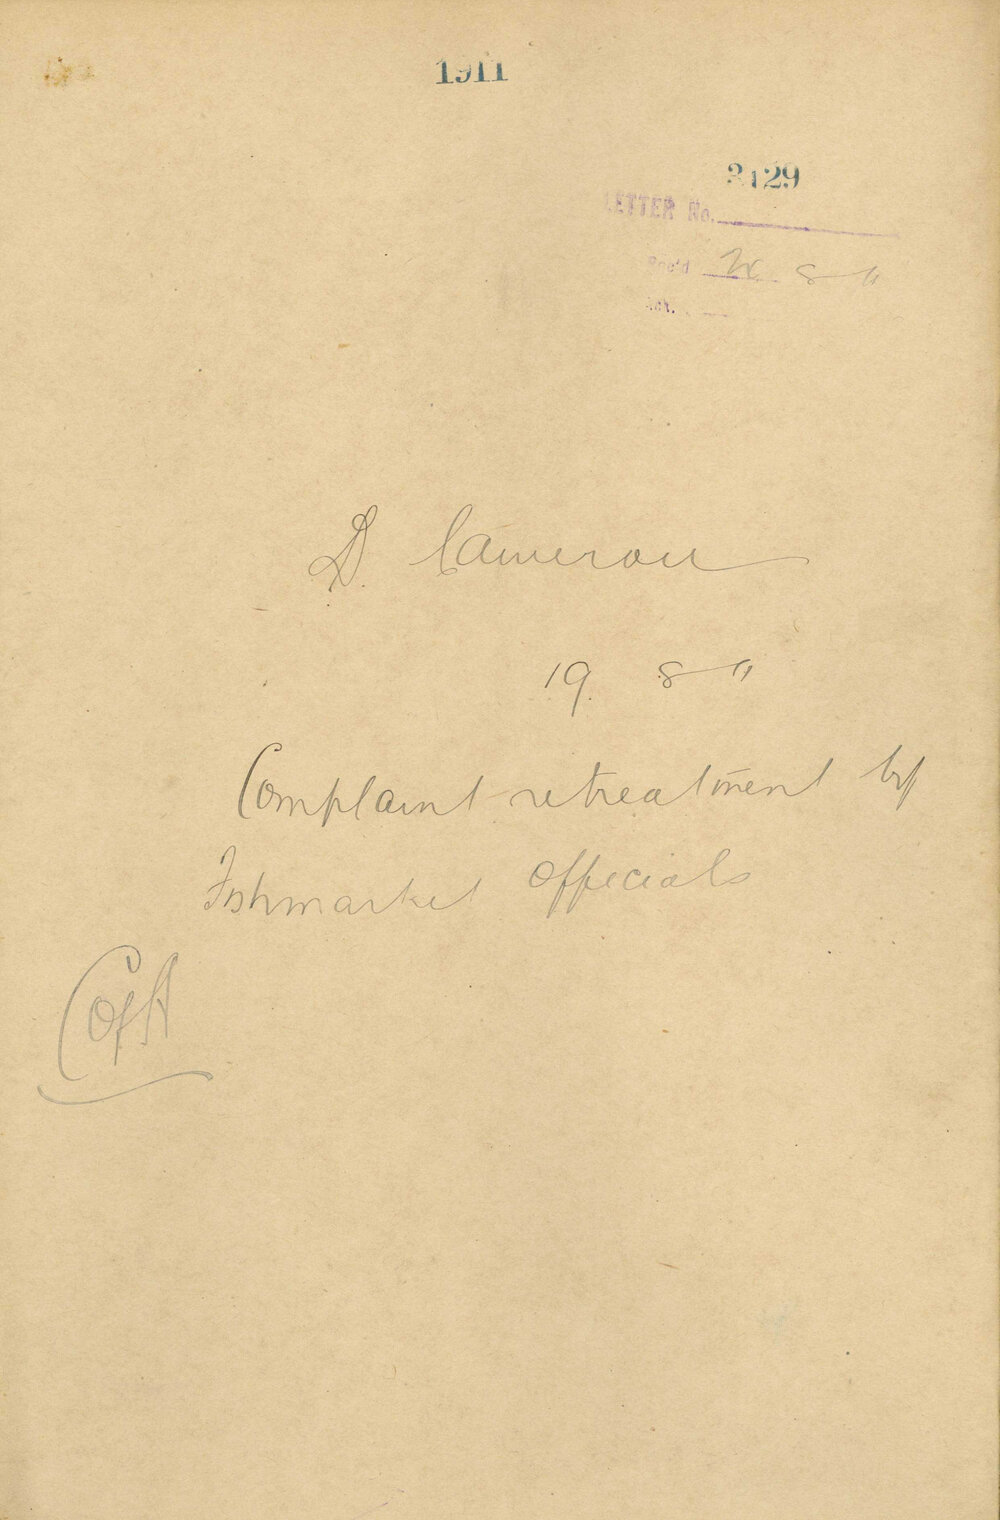 1911
3129
LETTER No.
Rec'd 8 11
Ack.
D. Cameron
19. 8 11
Complaint re treatment by
Fishmarket Officials
C of H